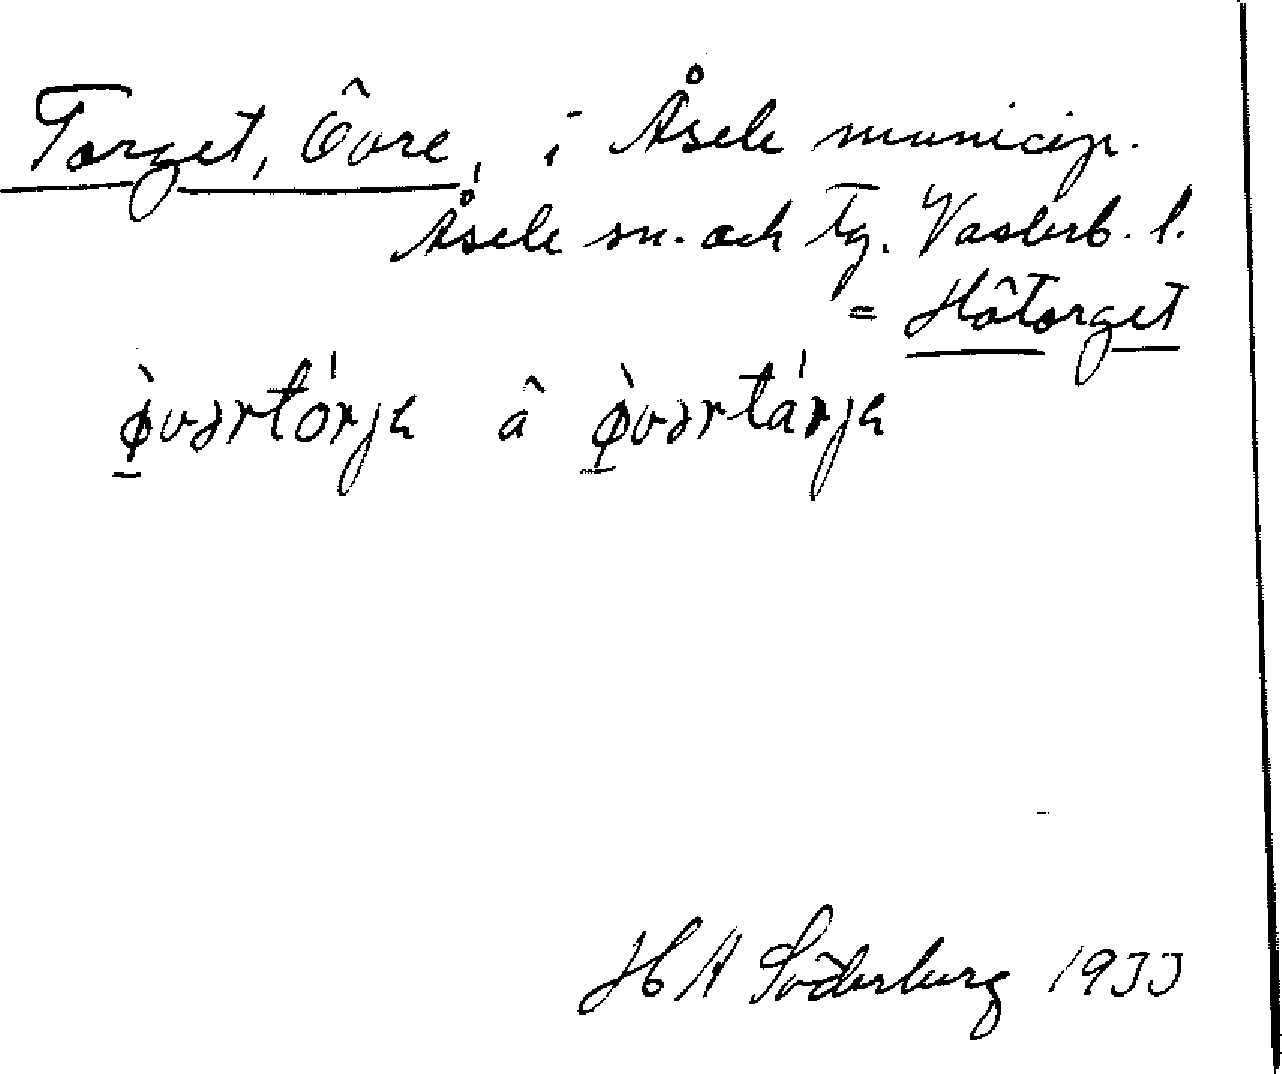 Torget, Övre, i Åsele municip.
Åsele sn. och Tg. Västerb. l.
= Hötorget
å
H A Söderberg 1933